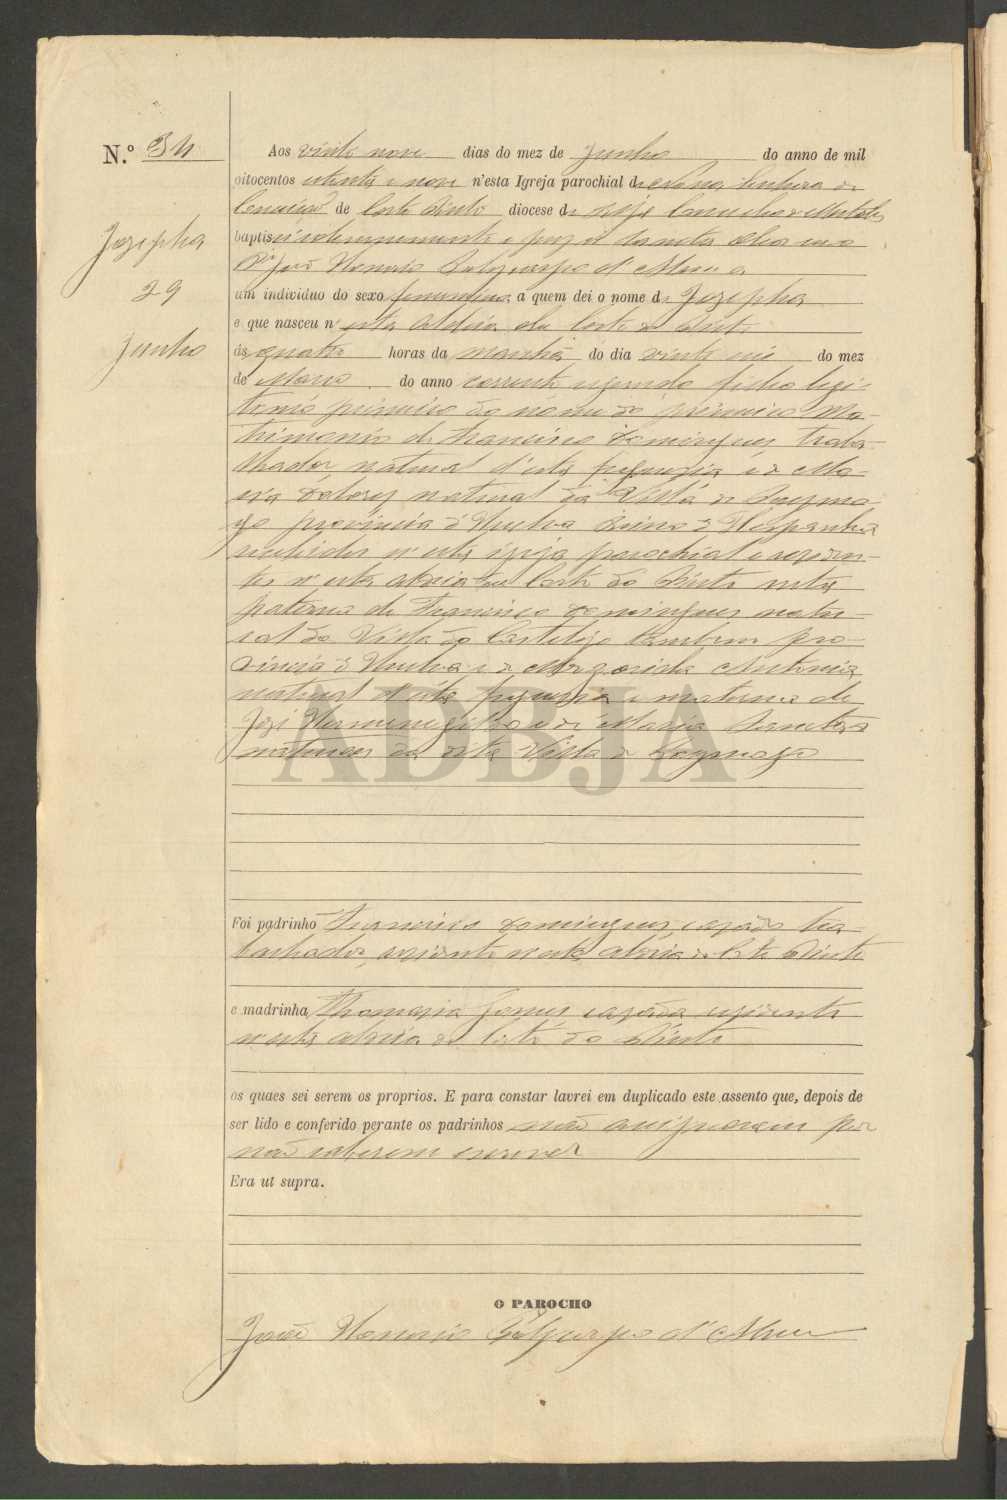 N.º 34
Jozepha
29
Junho
Aos vinte nove dias do mez de Junho do anno de mil
oitocentos oitenta e nove n'esta Igreja parochial de Nossa Senhora da
Conceição de Corte Pinto diocese de Beja Concelho de Mertola
baptisei solemnemente e puz os Santos Oleos eu o
P.e João Honorio d'Abreu a
um individuo do sexo femenino a quem dei o nome de Jozepha
e que nasceu n'esta Aldeia da Corte do Pinto
ás quatro horas da manhã do dia vinte seis do mez
de Março do anno corrente segundo filho legi-
timo primeiro do nome do primeiro Ma-
trimonio de Francisco Domingues, traba-
lhador natural d'esta freguezia e de Ma-
ria Dolores natural da Villa de
provincia d'Huelva Reino d'Hespanha
recebidos n'esta igreja parochial e residen-
tes n'esta aldeia da Corte do Pinto neta
paterna de Francisco Domingues natu-
ral da Villa do Castilejo tambem pro-
vincia d'Huelva e de Margarida Antonia
natural d'esta freguezia e materna de
José e de Maria
naturaes da dita Villa de
ADBJA
Foi padrinho Francisco Domingues casado tra-
balhador, residente nesta aldeia da Corte Pinto
e madrinha Thomazia Gomes casada residente
n'esta aldeia da Corte do Pinto
os quaes sei serem os proprios. E para constar lavrei em duplicado este assento que, depois de
ser lido e conferido perante os padrinhos não assignaram por
não saberem escrever
Era ut supra.
O PAROCHO
João Honorio d'Abreu